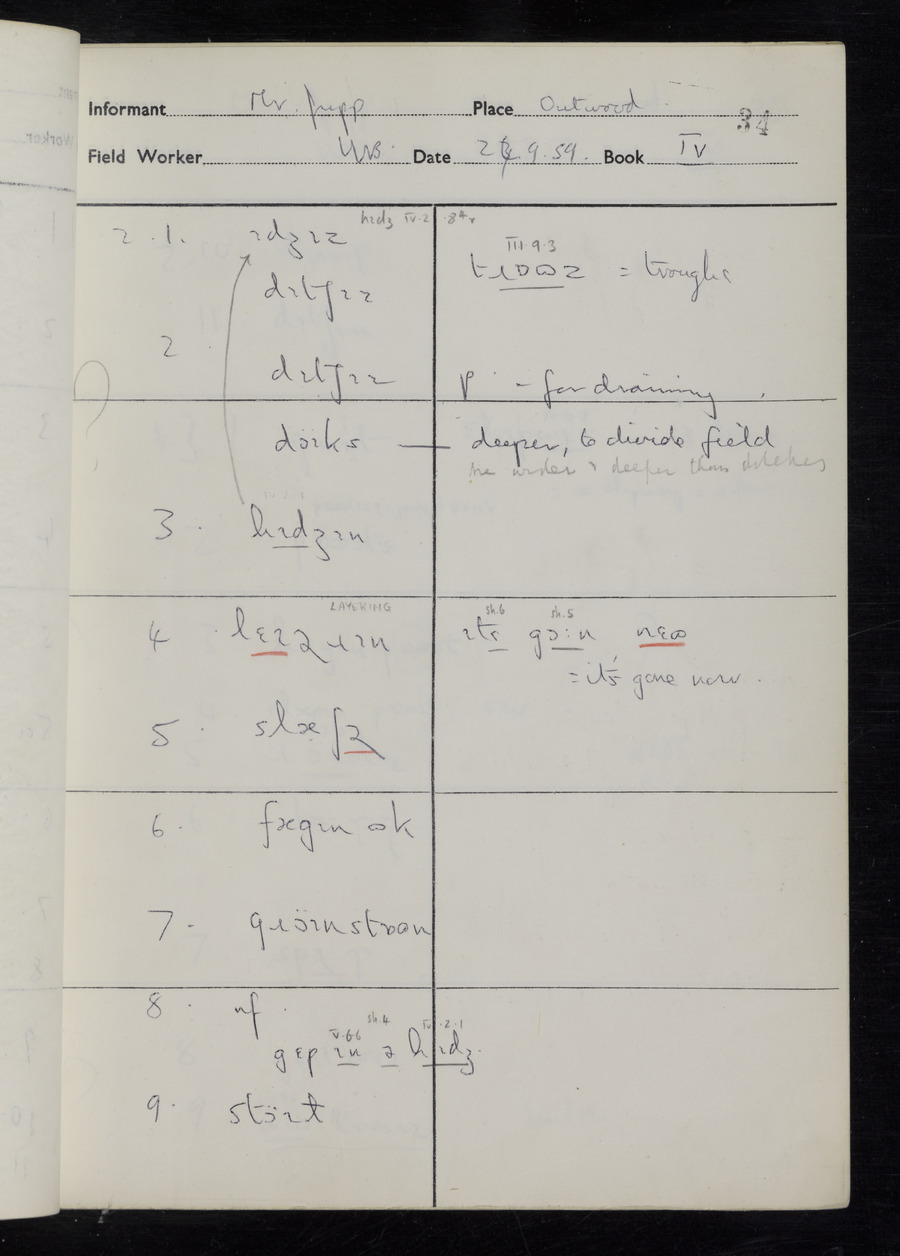 Informant Mr. Jupp Place Outwood
34
Field Worker Date 2 9.59. Book IV
hɪdʒ IV.2 .8
2.1. ɪdʒɪz
III.9.3
tɹɒʊz = troughs
dɪtʃɪz
2
dɪtʃɪz p - for draining,
döɪks — deeper, to divide field
are wider & deeper than ditches
3. hɪdʒɪn
LAYERING
4 lɛɪəɹɪn
sh.6 sh.5
ɪts gɔ:n nɛʊ
= it's gone now.
5. slæʃə
6. fægɪn ʊk
7. gɹöɪnstoʊn
8. nf.
V.6.6 sh.4 IV.2.1
gɛp ɪn ə hɪdʒ.
9. stöɪt